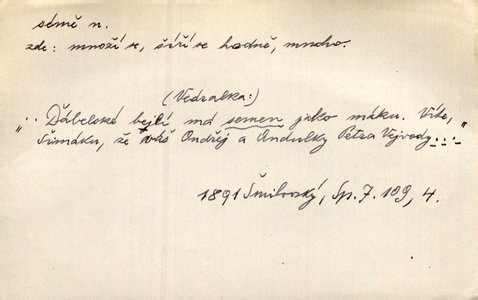 sémě n.
zde: množí se, šíří se hodně, mnoho.
(Vedralka:)
„.. Ďábelské bejlí má semen jako máku. Víte,
Šimáku, že váš Ondřej a Andulky Petra Vejvody...."
1891 Šmilovský, Sp. 7. 109, 4.